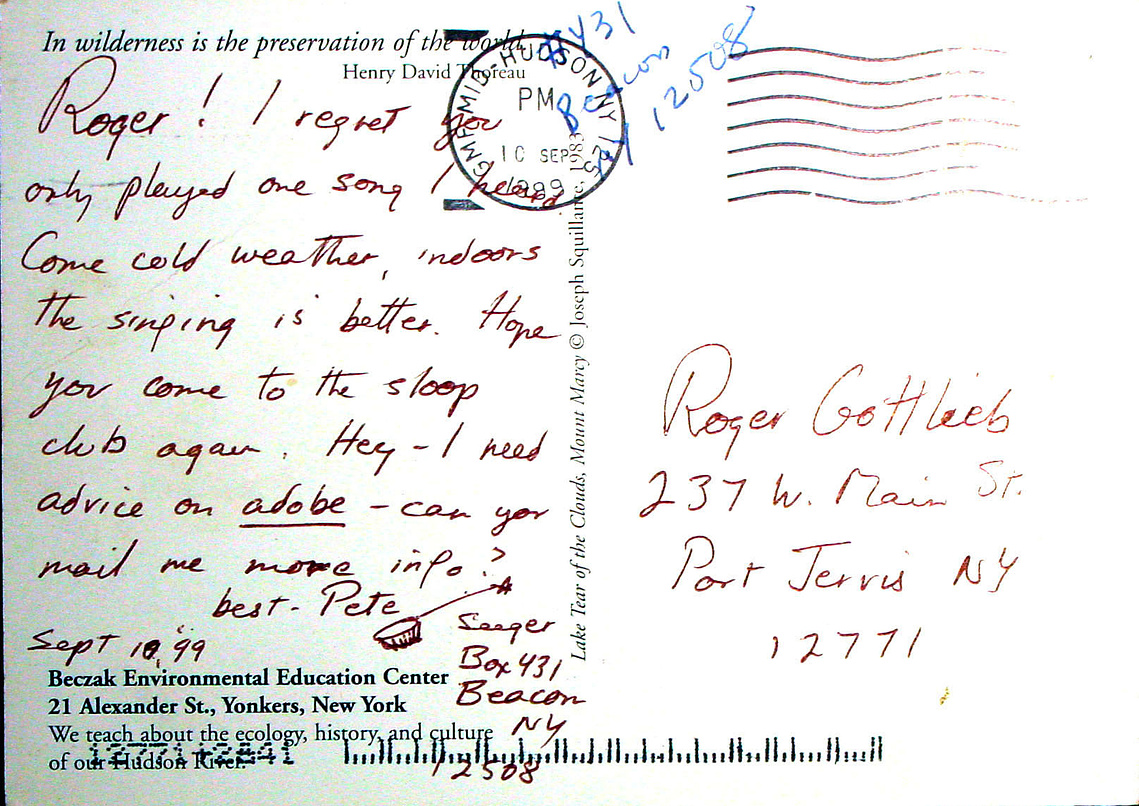 In wilderness is the preservation of the world.
Henry David Thoreau
Roger! I regret you
only played one song I heard.
Come cold weather, indoors
the singing is better. Hope
you come to the sloop
club again. Hey - I need
advice on adobe - can you
mail me more info?
best - Pete
Seeger
Box 431
Beacon
NY
12508
Sept 10, '99
Beczak Environmental Education Center
21 Alexander St., Yonkers, New York
We teach about the ecology, history, and culture
of our Hudson River.
12771+2841
Lake Tear of the Clouds, Mount Marcy © Joseph Squillante, 1983
MID-HUDSON NY 125
PM
10 SEP
1999
#431
Beacon
NY 12508
Roger Gottlieb
237 W. Main St.
Port Jervis NY
12771